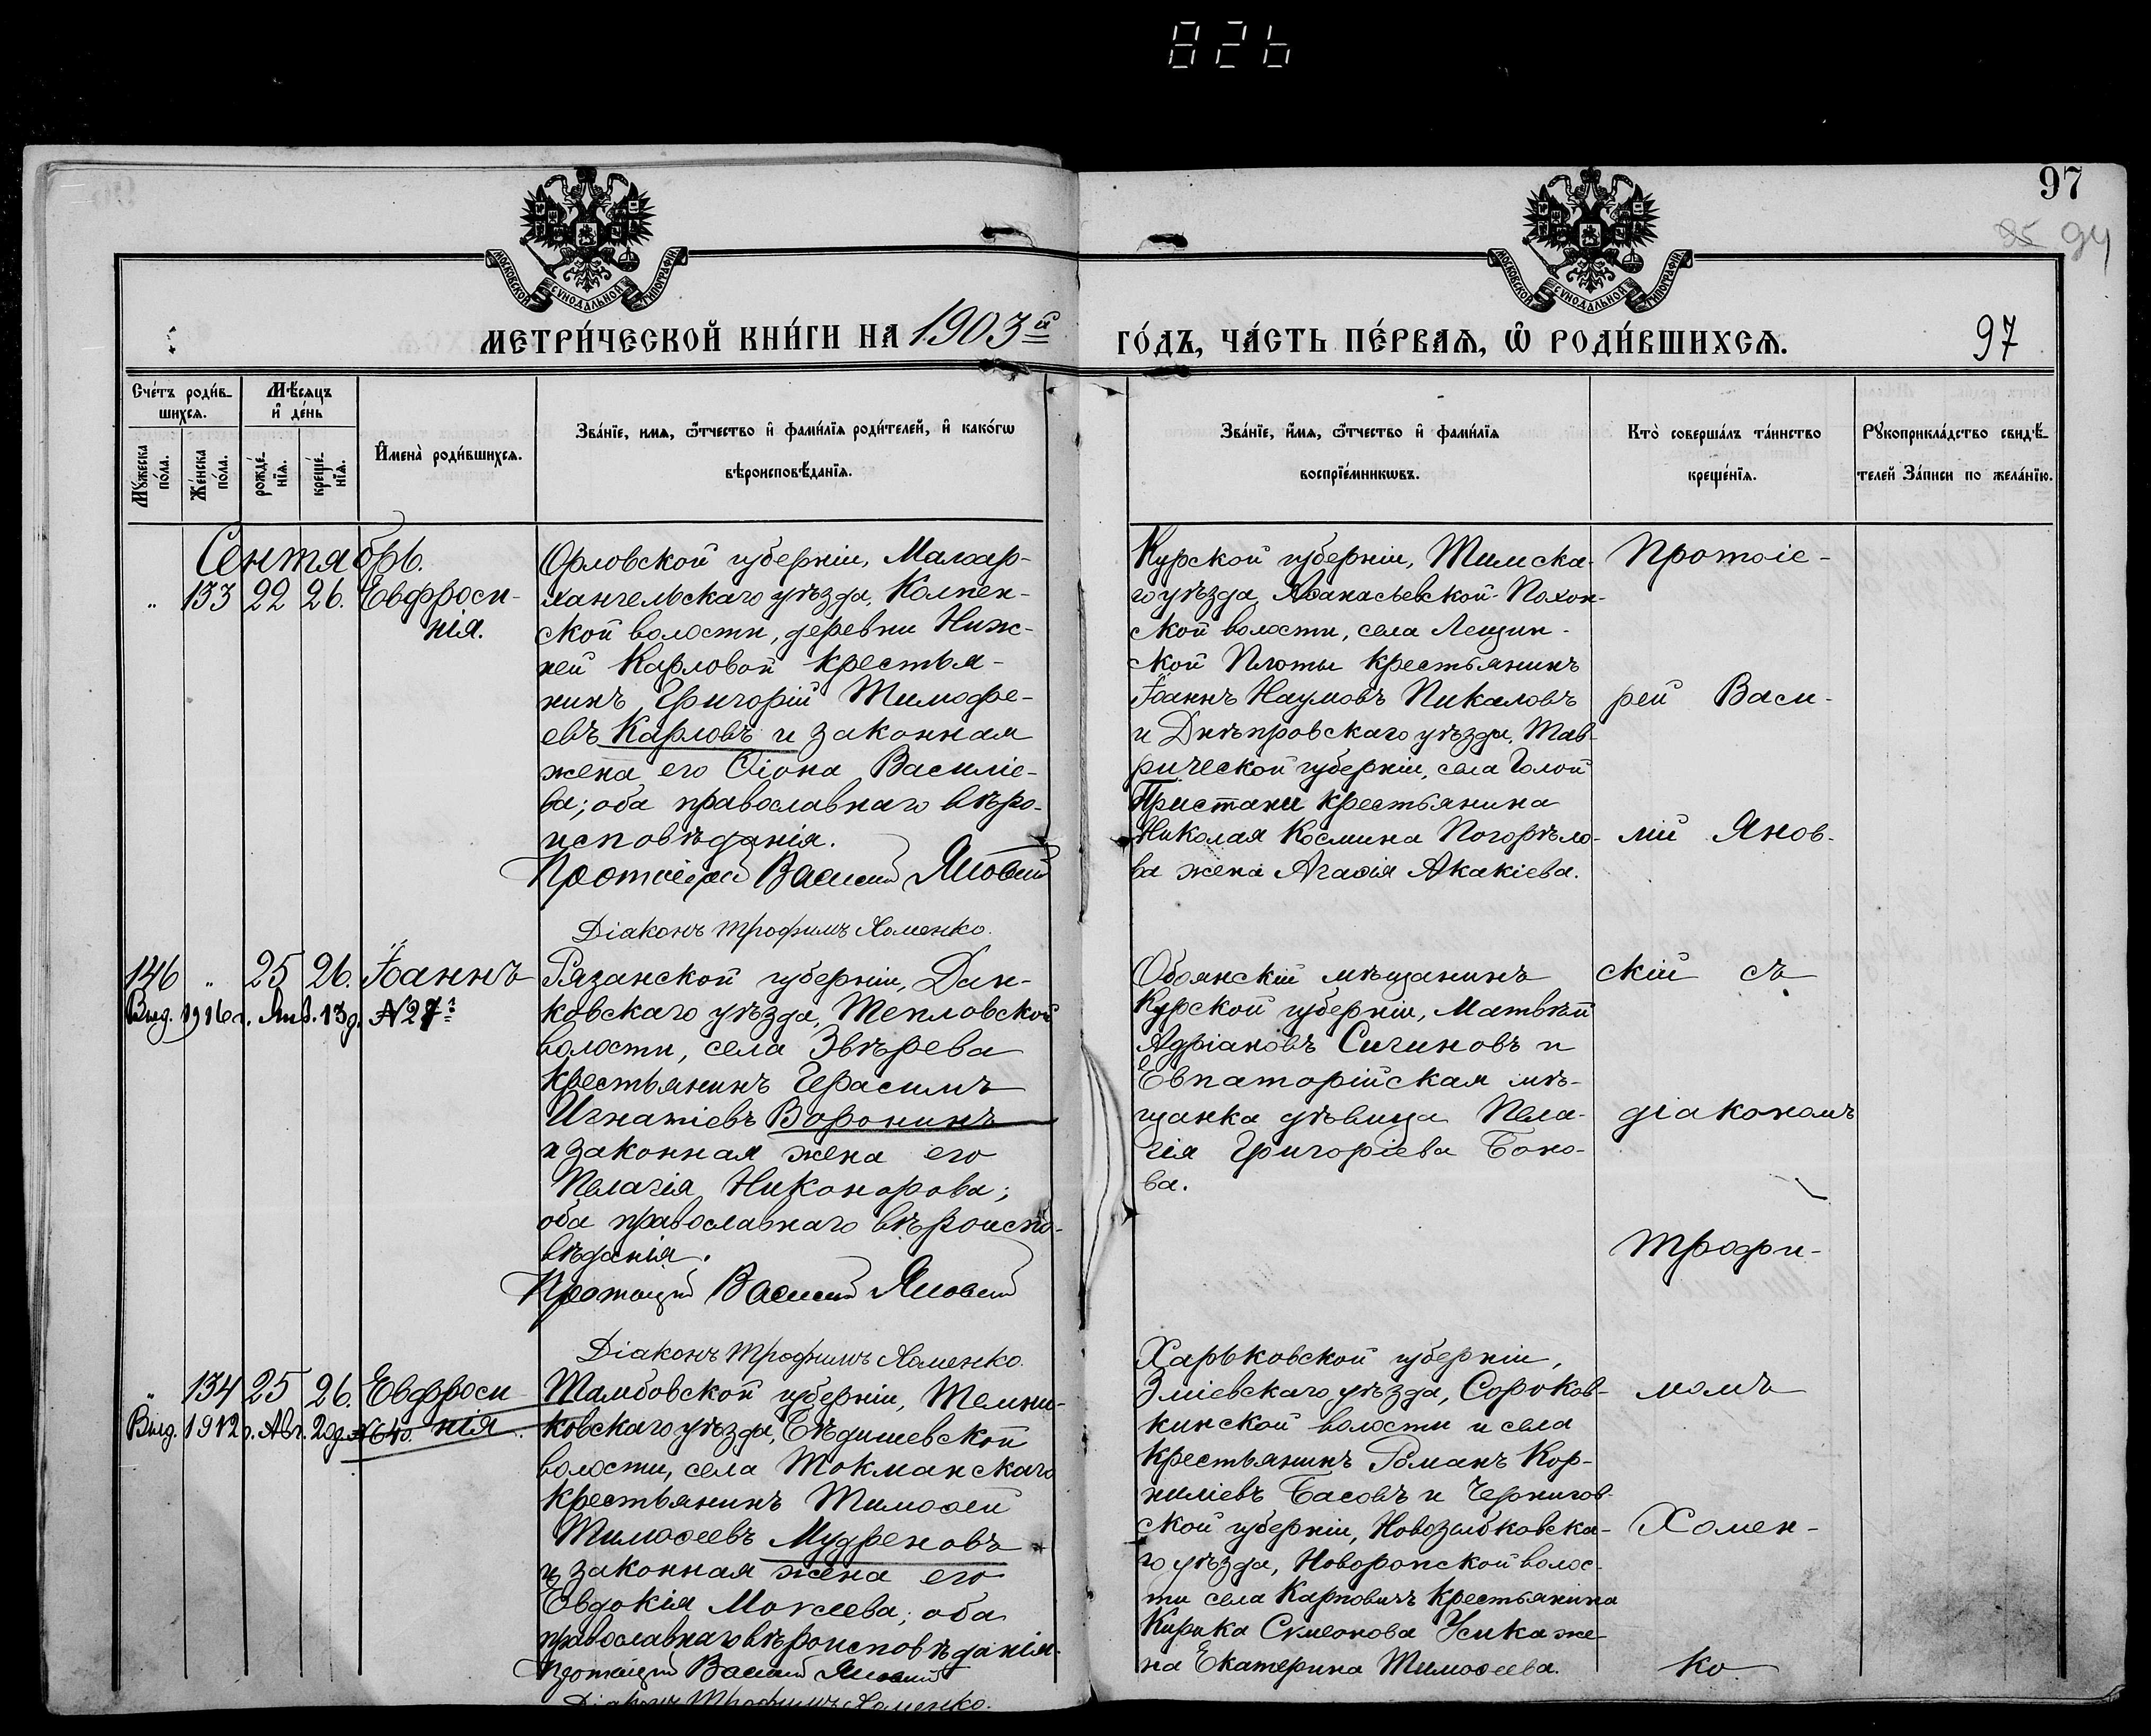 826
97
95 94
МОСКОВСКОЙ СѴНОДАЛЬНОЙ ТИПОГРАФІИ
МОСКОВСКОЙ СѴНОДАЛЬНОЙ ТИПОГРАФІИ
МЕТРИ́ЧЕСКОЙ КНИ́ГИ НА 1903й
ГО́ДЪ, ЧА́СТЬ ПЕ́РВАѦ, Ѿ РОДИ́ВШИХСѦ.
97
Сче́тъ роди́в-
шихсѧ.
Мѣ́сѧцъ
и҆ де́нь
Мꙋ́жеска
по́ла.
Же́нска
по́ла.
рожде́-
нїѧ.
креще́-
нїѧ.
И҆мена̀ роди́вшихсѧ.
Зва́нїе, имѧ, ѻ҆́тчество и҆ фами́лїѧ роди́телей, и҆ како́гѡ
вѣроисповѣ́данїѧ.
Зва́нїе, и҆́мѧ, ѻ҆́тчество и҆ фами́лїѧ
воспрїе́мникѡвъ.
Кто̀ соверша́лъ та́инство
креще́нїѧ.
Рꙋкоприкла́дство свидѣ́-
телей За́писи по жела́нїю.
Сентябрь.
" 133 22 26. Евфроси-
нія.
Орловской губерніи, Малоар-
хангельскаго уѣзда, Колпен-
ской волости, деревни Ниж-
ней Карловой крестья-
нинъ Григорій Тимофе-
евъ Карловъ и законная
жена его Ѳіона Василіе-
ва; оба православнаго вѣро-
исповѣданія.
Протоіерей Василій Яновскій
Діаконъ Трофимъ Хоменко.
Курской губерніи, Тимска-
го уѣзда, Аѳанасьевской-Похон-
ской волости, села Лещин-
ской Плоты крестьянинъ
Іоаннъ Наумовъ Пикаловъ
и Днѣпровскаго уѣзда, Тав-
рической губерніи, села Голой
Пристани крестьянина
Николая Космина Погорѣло-
ва жена Агаѳія Акакіева.
146 " 25 26. Іоаннъ
Выд. 1916 г. Янв. 13 д. № 27.
Рязанской губерніи, Дан-
ковскаго уѣзда, Тепловской
волости, села Звѣрева
крестьянинъ Герасимъ
Игнатіевъ Воронинъ
и законная жена его
Пелагія Никонорова;
оба православнаго вѣроиспо-
вѣданія.
Протоіерей Василій Яновскій
Діаконъ Трофимъ Хоменко.
Обоянскій мѣщанинъ
Курской губерніи, Матвѣй
Адріановъ Сичиновъ и
Евпаторійская мѣ-
щанка дѣвица Пела-
гія Григоріева Боко-
ва.
" 134 25 26. Евфроси-
нія
Выд. 1912 г. Авг. 20 д. № 640.
Тамбовской губерніи, Темни-
ковскаго уѣзда, Бѣдишевской
волости, села Токманскаго
крестьянинъ Тимоѳей
Тимоѳеевъ Мудреновъ
и законная жена его
Евдокія Мокеева; оба
православнаго вѣроисповѣданія.
Протоіерей Василій Яновскій
Діаконъ Трофимъ Хоменко.
Харьковской губерніи,
Зміевскаго уѣзда, Сороков-
кинской волости и села
крестьянинъ Романъ Кор-
ниліевъ Басовъ и Чернигов-
ской губерніи, Новозыбковска-
го уѣзда, Новоропской волос-
ти села Карповичъ крестьянина
Кирика Симеонова Усика же-
на Екатерина Тимоѳеева.
Протоіе-
рей Васи-
лій Янов-
скій съ
діакономъ
Трофи-
момъ
Хомен-
ко